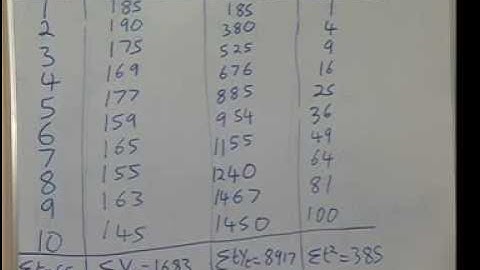 1 185 185 1
2 190 380 4
3 175 525 9
4 169 676 16
5 177 885 25
6 159 954 36
7 165 1155 49
8 155 1240 64
9 163 1467 81
10 145 1450 100
Σt=55 ΣY =1683 ΣtYt=8917 Σt²=385